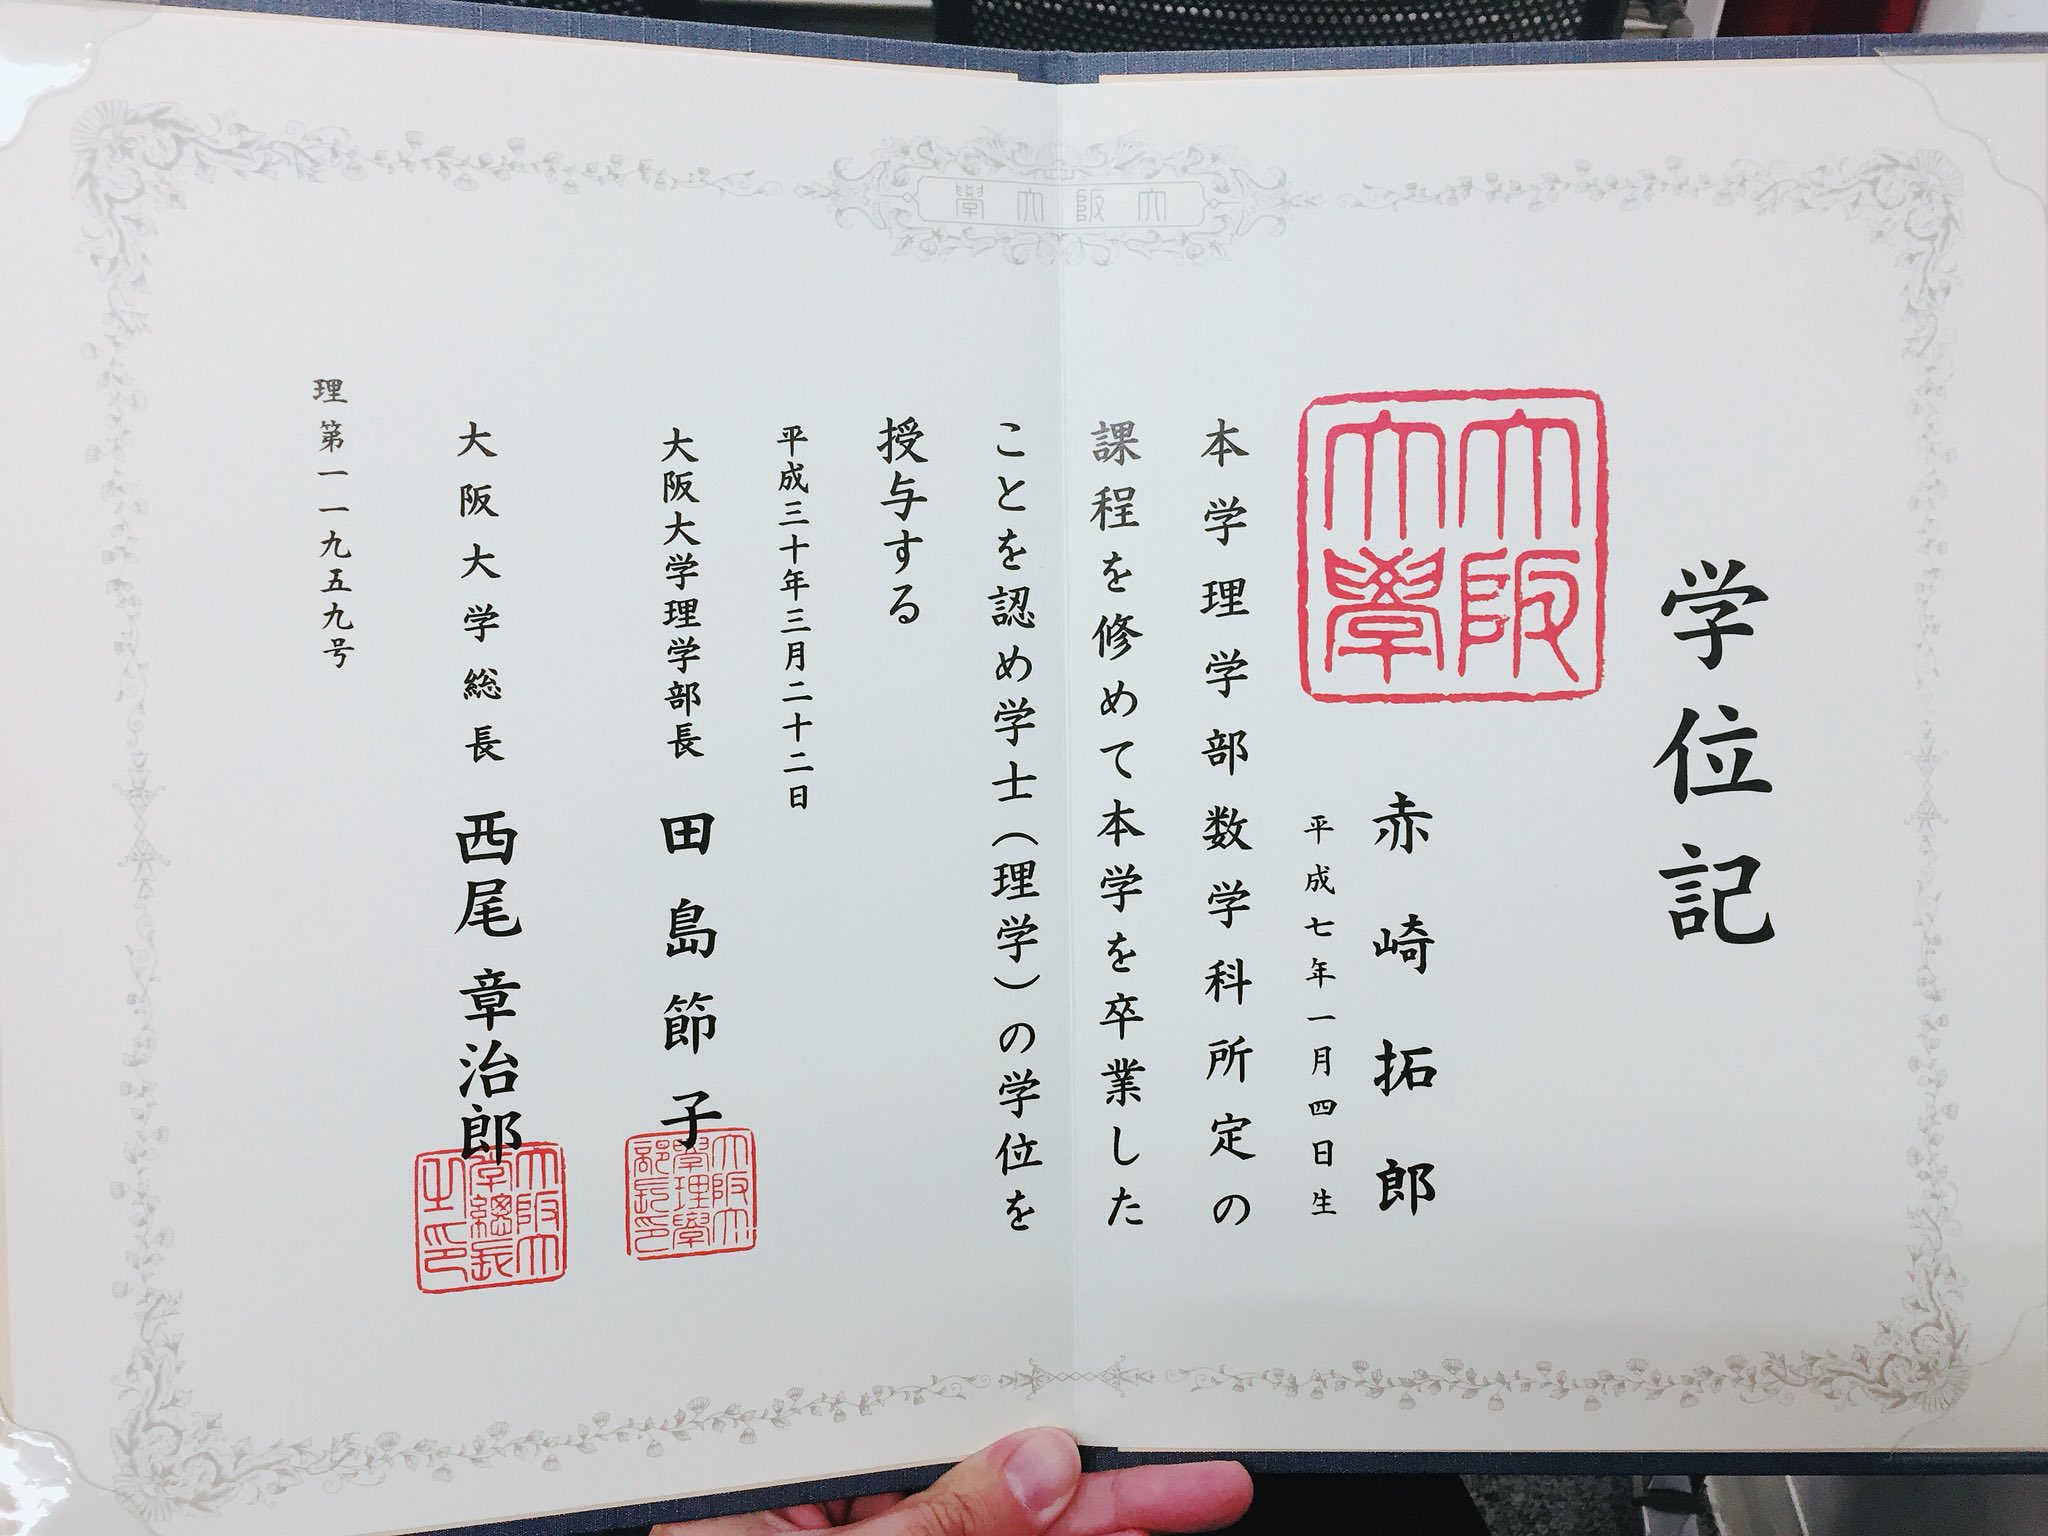 大阪大學
学位記
大阪大學
赤崎拓郎
平成七年一月四日生
本学理学部数学科所定の
課程を修めて本学を卒業した
ことを認め学士（理学）の学位を
授与する
平成三十年三月二十二日
大阪大学理学部長 田島節子
大阪大學理學部長印
大阪大学総長 西尾章治郎
大阪大学總長之印
理第一一九五九号